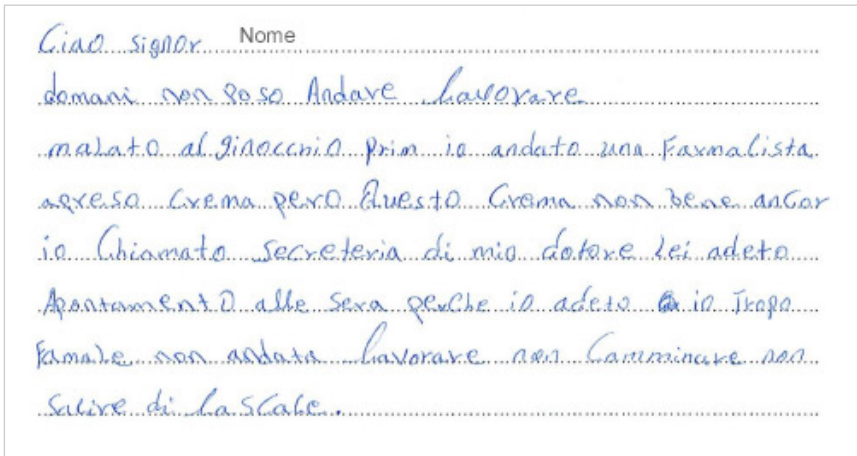 Ciao signor Nome
domani non poso Andare Lavorare
malato al ginocchio prim io andato una Farmalista
apreso Crema pero Questo Crema non bene ancor
io Chiamato secreteria di mio dotore lei adeto
Apontamento alle sera perche io adeto io Tropo
Famale non andata Lavorare non Camminare non
salire di La scale.